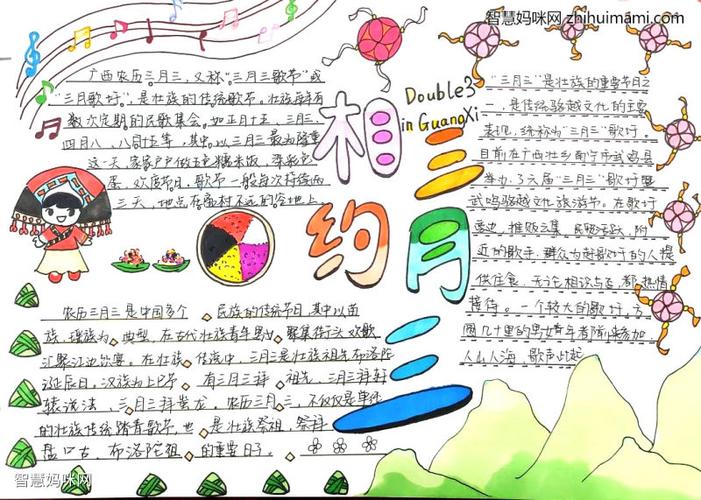 智慧妈咪网 zhihuimami.com
相约三月三
Double3
in GuangXi
广西农历三月三,又称"三月三歌节"或
"三月歌圩",是壮族的传统歌节。壮族每年有
数次定期的民歌集会,如正月十五、三月三、
四月八、八月十五等,其中以三月三最为隆重
这一天,家家户户做五色糯米饭,染彩色
蛋,欢度节日,歌节一般每次持续两
三天,地点在离村不远的空地上
"三月三"是壮族的重要节日之
一,是传统骆越文化的主要
表现,统称为"三月三"歌圩,
目前在广西壮乡南宁市武鸣县
举办了六届"三月三"歌圩暨
武鸣骆越文化旅游节。在歌圩
旁边,摊贩云集,民贸活跃,附
近的歌手,群众为赶歌圩的人提
供住食,无论相识与否,都热情
接待。一个较大的歌圩,方
圆几十里的男女青年都前来参加
人山人海,歌声此起
农历三月三是中国多个 民族的传统节日,其中以苗
族、瑶族为 典型,在古代壮族青年男女 聚集街头欢歌
汇聚江边饮宴。在壮族 传说中,三月三是壮族祖先布洛陀
诞辰日,汉族为上巳节 有三月三拜 祖先,三月三拜轩
辕说法、三月三拜蚩尤,农历三月三,不仅仅是单纯
的壮族传统踏青歌节,也 是壮族祭祖,祭拜
盘古、布洛陀祖 的重要日子。
智慧妈咪网